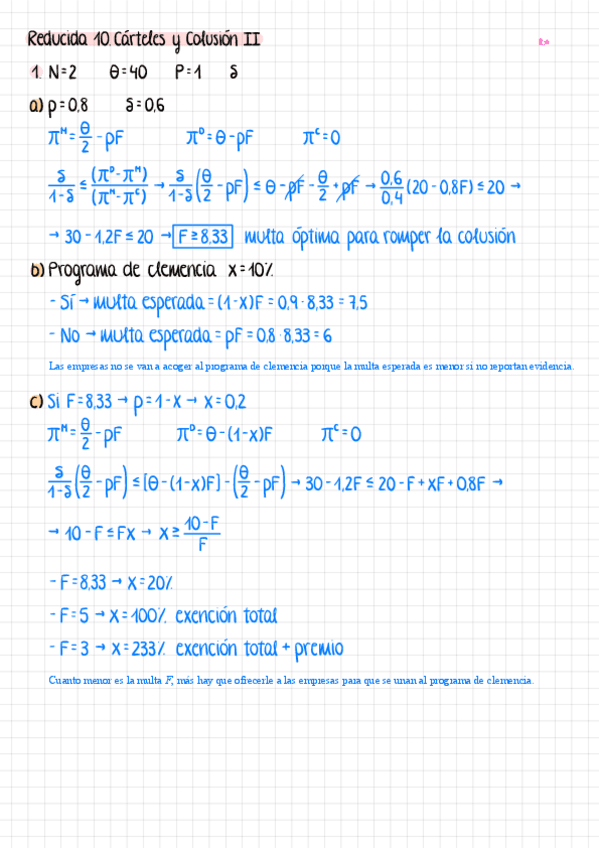 Reducida 10. Cárteles y Colusión II
1. N=2 θ=40 P=1 δ
a) p=0,8 δ=0,6
π^M = θ/2 - pF π^D = θ - pF π^C = 0
δ/(1-δ) ≤ (π^D - π^M)/(π^M - π^C) → δ/(1-δ) (θ/2 - pF) ≤ θ - pF - θ/2 + pF → 0,6/0,4 (20 - 0,8F) ≤ 20 →
→ 30 - 1,2F ≤ 20 → F ≥ 8,33 multa óptima para romper la colusión
b) Programa de clemencia x=10%
- Sí → multa esperada = (1-x)F = 0,9 · 8,33 = 7,5
- No → multa esperada = pF = 0,8 · 8,33 = 6
Las empresas no se van a acoger al programa de clemencia porque la multa esperada es menor si no reportan evidencia.
c) Si F=8,33 → p=1-x → x=0,2
π^M = θ/2 - pF π^D = θ - (1-x)F π^C = 0
δ/(1-δ) (θ/2 - pF) ≤ [θ - (1-x)F] - (θ/2 - pF) → 30 - 1,2F ≤ 20 - F + xF + 0,8F →
→ 10 - F ≤ Fx → x ≥ (10-F)/F
- F=8,33 → x=20%
- F=5 → x=100% exención total
- F=3 → x=233% exención total + premio
Cuanto menor es la multa F, más hay que ofrecerle a las empresas para que se unan al programa de clemencia.